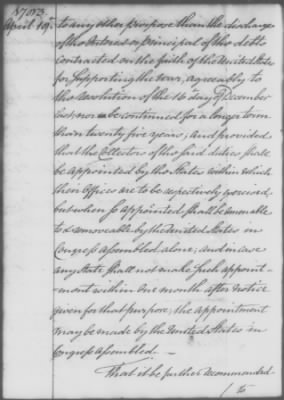 1783.
April 19th
to any other purpose than the discharge
of the Interest or principal of the debts
contracted on the faith of the United States
for supporting the war, agreeably to
the resolution of the 16 day of December
last, nor be continued for a longer term
than twenty five years; and provided
that the Collectors of the said duties shall
be appointed by the States within which
their Offices are to be respectively exercised
but when so appointed shall be amenable
to & removeable by the United States in
Congress assembled, alone; and in case
any State shall not make such appoint-
-ment within one month after notice
given for that purpose, the appointment
may be made by the United States in
Congress Assembled. —
That it be further recommended
/ to